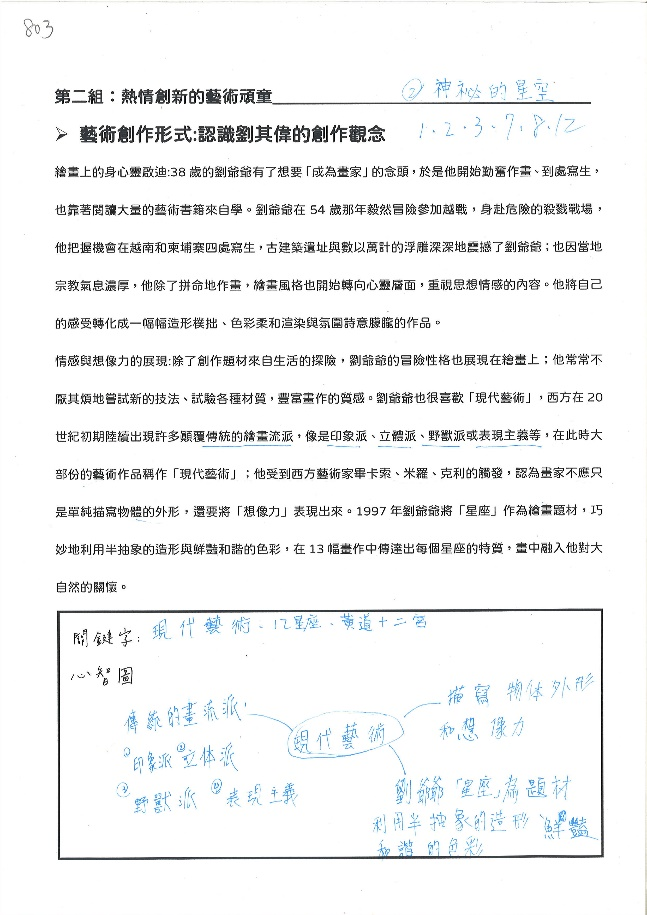 803
第二組：熱情創新的藝術頑童
② 神祕的星空
➢ 藝術創作形式:認識劉其偉的創作觀念
1、2、3、7、8、12
繪畫上的身心靈啟迪:38 歲的劉爺爺有了想要「成為畫家」的念頭，於是他開始勤奮作畫、到處寫生，
也靠著閱讀大量的藝術書籍來自學。劉爺爺在 54 歲那年毅然冒險參加越戰，身赴危險的殺戮戰場，
他把握機會在越南和柬埔寨四處寫生，古建築遺址與數以萬計的浮雕深深地震撼了劉爺爺；也因當地
宗教氣息濃厚，他除了拼命地作畫，繪畫風格也開始轉向心靈層面，重視思想情感的內容。他將自己
的感受轉化成一幅幅造形樸拙、色彩柔和渲染與氛圍詩意朦朧的作品。
情感與想像力的展現:除了創作題材來自生活的探險，劉爺爺的冒險性格也展現在繪畫上；他常常不
厭其煩地嘗試新的技法、試驗各種材質，豐富畫作的質感。劉爺爺也很喜歡「現代藝術」，西方在 20
世紀初期陸續出現許多顛覆傳統的繪畫流派，像是印象派、立體派、野獸派或表現主義等，在此時大
部份的藝術作品稱作「現代藝術」；他受到西方藝術家畢卡索、米羅、克利的觸發，認為畫家不應只
是單純描寫物體的外形，還要將「想像力」表現出來。1997 年劉爺爺將「星座」作為繪畫題材，巧
妙地利用半抽象的造形與鮮豔和諧的色彩，在 13 幅畫作中傳達出每個星座的特質，畫中融入他對大
自然的關懷。
關鍵字：現代藝術、12星座、黃道十二宮
心智圖
傳統的畫流派
①印象派 ②立体派
③野獸派 ④表現主義
現代藝術
描寫物体外形
和想像力
劉爺爺「星座」為題材
利用半抽象的造形 鮮豔
和諧的色彩